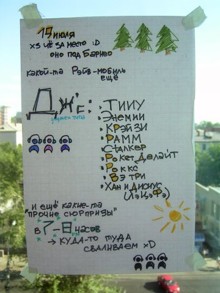 19 июля
xs чё за место :D
оно под Барнео
какой-то Рэйв-мобиль
ещё
Дж'с:
• ТИИУ
• Энемии
• Крэйзи
• Рамм
• Сталкер
• Рокет Делайт
• Роккс
• Вэ три
• Хан и Дискус
и ещё какие-то
"прочие сюрпризы"
в 7-8 часов
→ куда-то туда
сваливаем xD